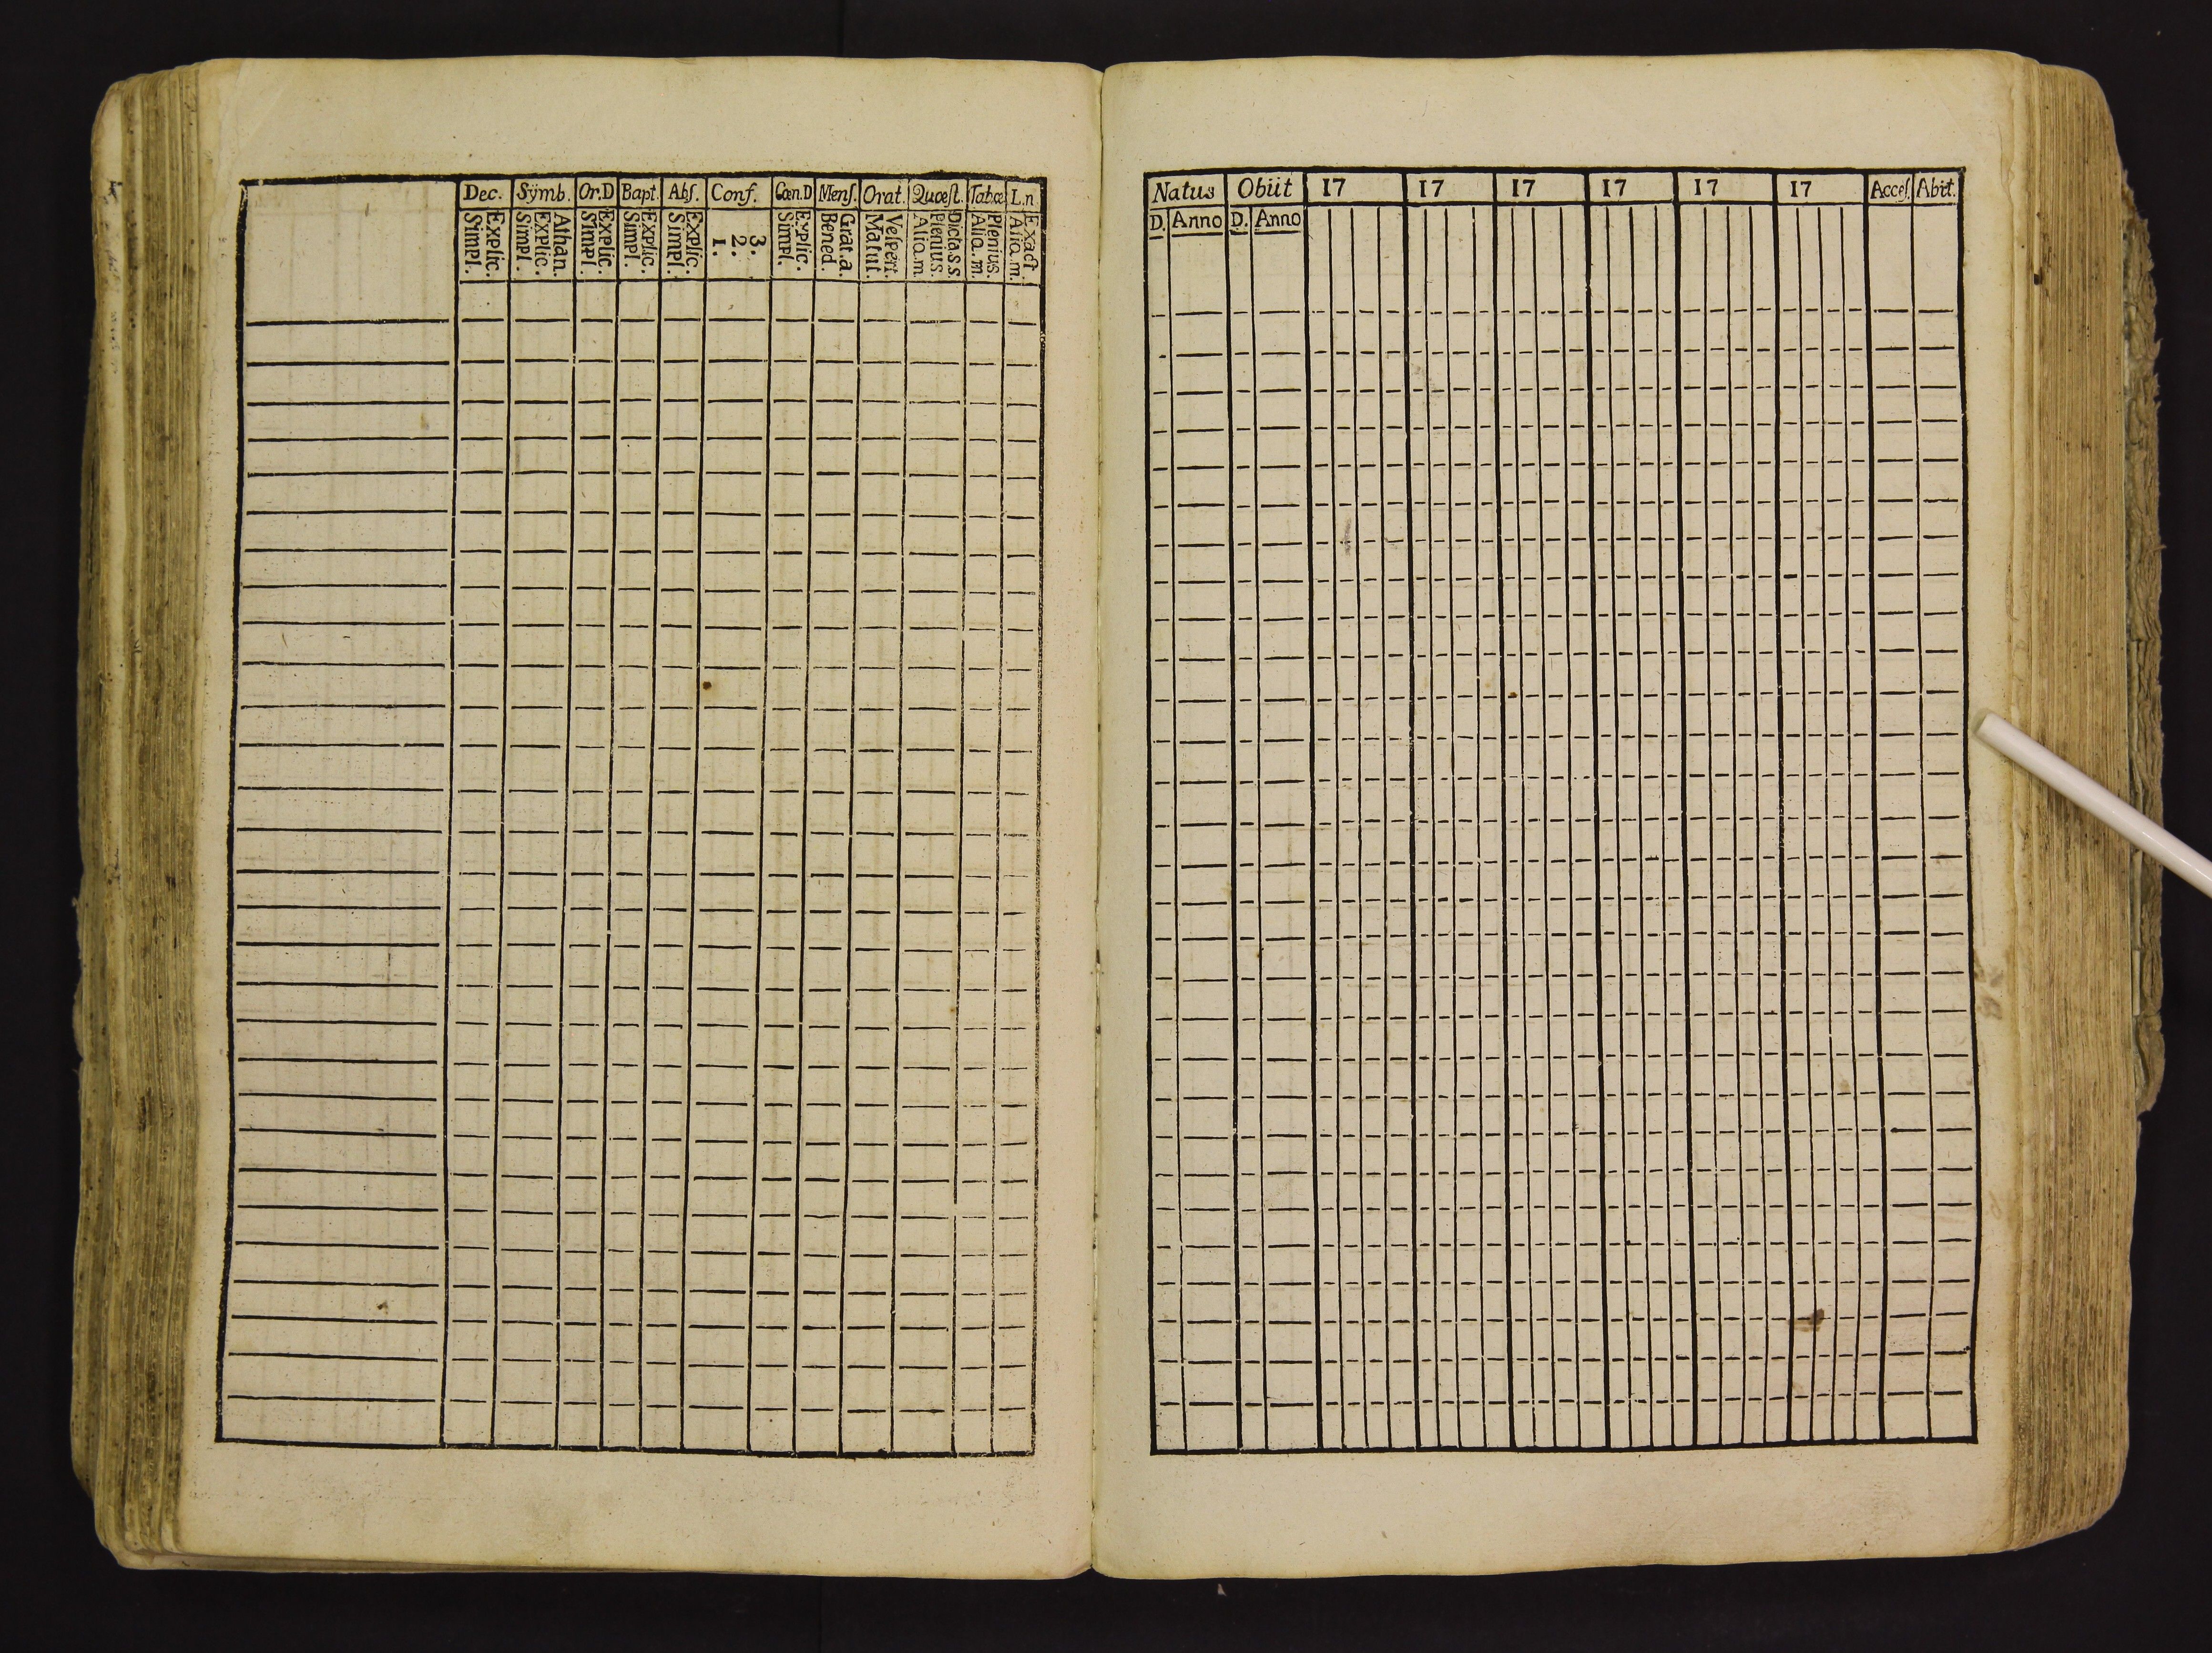 Dec. Sÿmb. Or.D Bapt. Abſ. Conf. Cœn.D Menſ. Orat. Quæſt. Tabœ L.n.
Explic.
Simpl.
Athan.
Explic.
Simpl.
Explic.
Simpl.
Explic.
Simpl.
Explic.
Simpl.
3.
2.
1.
Explic.
Simpl.
Grat.a.
Bened.
Veſpert.
Matut.
Dicta.s.s.
Plenius.
Aliq.m.
Plenius.
Aliq.m.
Exact.
Aliq.m.
Natus Obiit 17 17 17 17 17 17 Acceſ. Abiit.
D. Anno D. Anno